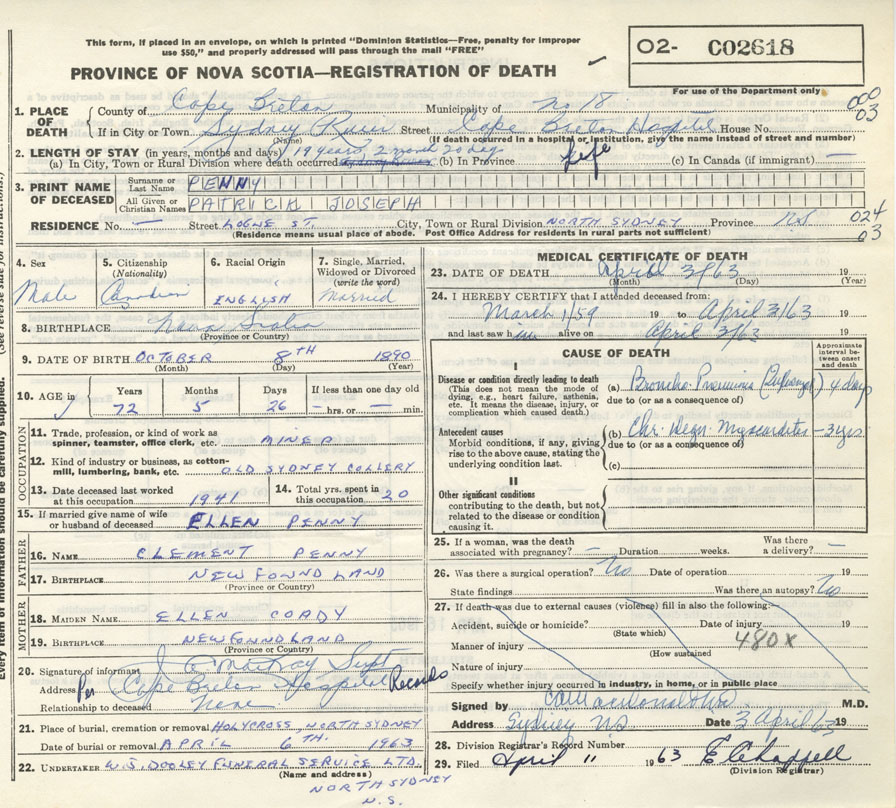 This form, if placed in an envelope, on which is printed "Dominion Statistics—Free, penalty for improper
use $50," and properly addressed will pass through the mail "FREE"
PROVINCE OF NOVA SCOTIA—REGISTRATION OF DEATH
O2- C02618
For use of the Department only
1. PLACE OF DEATH
County of Cape Breton Municipality of No 18
If in City or Town Sydney River Street Cape Breton Hospital House No.
(Name) (If death occurred in a hospital or institution, give the name instead of street and number)
000
03
2. LENGTH OF STAY (in years, months and days)
(a) In City, Town or Rural Division where death occurred 19 years 2 month 20 days (b) In Province Life (c) In Canada (if immigrant) —
3. PRINT NAME OF DECEASED
Surname or Last Name PENNY
All Given or Christian Names PATRICK JOSEPH
RESIDENCE No. — Street LOGUE ST. City, Town or Rural Division NORTH SYDNEY Province N.S
(Residence means usual place of abode. Post Office Address for residents in rural parts not sufficient)
024
03
4. Sex Male
5. Citizenship (Nationality) Canadian
6. Racial Origin ENGLISH
7. Single, Married, Widowed or Divorced (write the word) Married
8. BIRTHPLACE Nova Scotia
(Province or Country)
9. DATE OF BIRTH OCTOBER 8TH 1890
(Month) (Day) (Year)
10. AGE in Years Months Days If less than one day old
72 5 26 — hrs. or — min.
OCCUPATION
11. Trade, profession, or kind of work as spinner, teamster, office clerk, etc. MINER
12. Kind of industry or business, as cotton-mill, lumbering, bank, etc. OLD SYDNEY COLLERY
13. Date deceased last worked at this occupation 1941
14. Total yrs. spent in this occupation 20
15. If married give name of wife or husband of deceased ELLEN PENNY
FATHER
16. NAME CLEMENT PENNY
17. BIRTHPLACE NEWFOUNDLAND
(Province or Country)
MOTHER
18. MAIDEN NAME ELLEN COADY
19. BIRTHPLACE NEWFOUNDLAND
(Province or Country)
20. Signature of informant MacKay Supt
Address Per Cape Breton Hospital Records
Relationship to deceased None
21. Place of burial, cremation or removal HOLYCROSS, NORTH SYDNEY
Date of burial or removal APRIL 6TH. 1963
22. UNDERTAKER W.J. DOOLEY FUNERAL SERVICE LTD.
(Name and address)
NORTH SYDNEY
N.S.
MEDICAL CERTIFICATE OF DEATH
23. DATE OF DEATH April 3/63 19
(Month) (Day) (Year)
24. I HEREBY CERTIFY that I attended deceased from:
March 1/59 19 to April 3/63
and last saw him alive on April 3/63 19
CAUSE OF DEATH
Approximate interval between onset and death
I
Disease or condition directly leading to death
(This does not mean the mode of dying, e.g., heart failure, asthenia, etc. It means the disease, injury, or complication which caused death.)
(a) Broncho-Pneumonia (Influenzal) 4 days
due to (or as a consequence of)
Antecedent causes
Morbid conditions, if any, giving rise to the above cause, stating the underlying condition last.
(b) Chr. Degn. Myocarditis — 3 yrs
due to (or as a consequence of)
(c)
II
Other significant conditions
contributing to the death, but not related to the disease or condition causing it.
25. If a woman, was the death associated with pregnancy? — Duration weeks. Was there a delivery? —
26. Was there a surgical operation? No Date of operation 19
State findings Was there an autopsy? No
27. If death was due to external causes (violence) fill in also the following:
Accident, suicide or homicide? Date of injury 19
(State which)
Manner of injury 480X
(How sustained
Nature of injury
Specify whether injury occurred in industry, in home, or in public place
Signed by M.D.
Address Sydney NS Date 3 April 63 19
28. Division Registrar's Record Number
29. Filed April 11 1963 E C Chappell
(Division Registrar)
(See reverse side for instructions.)
Every item of information should be carefully supplied.